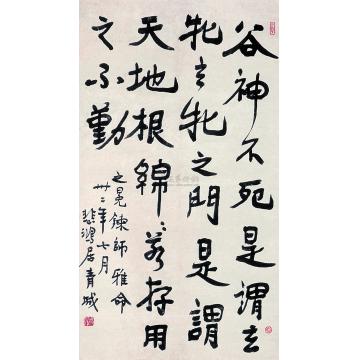 谷神不死是謂玄
牝玄牝之門是謂
天地根綿〻若存用
之不勤
之鍊師雅命
卅二年七月
悲鴻居青城